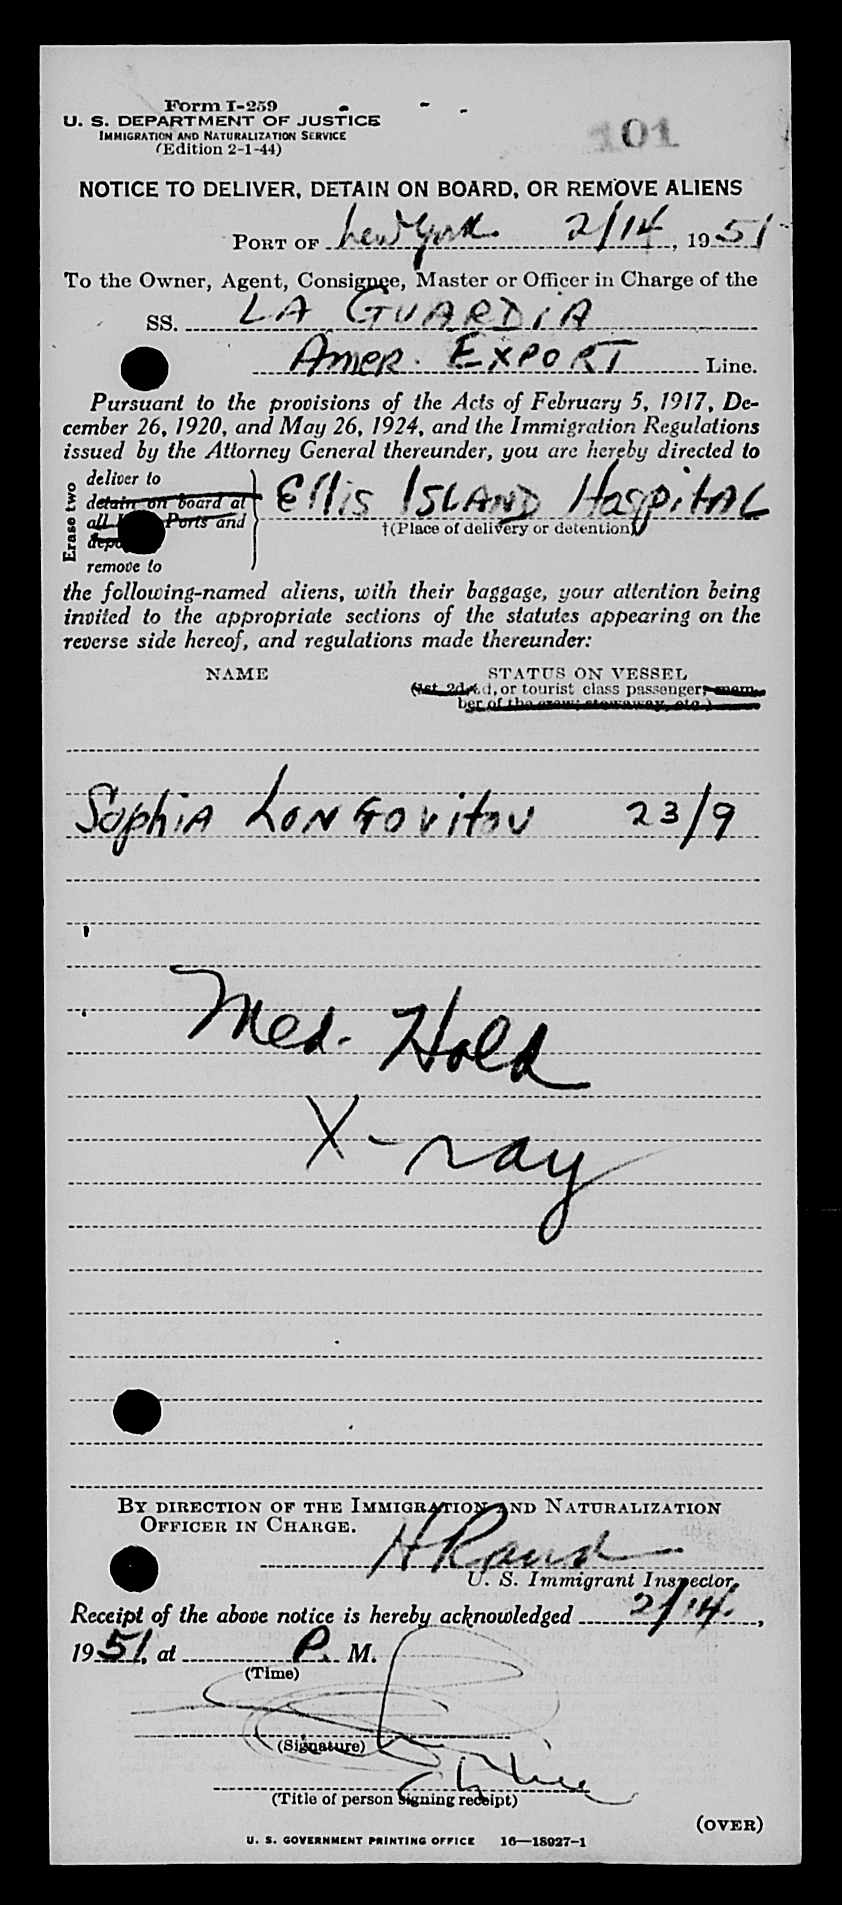 Form I-259
U. S. DEPARTMENT OF JUSTICE
IMMIGRATION AND NATURALIZATION SERVICE
(Edition 2-1-44)
101
NOTICE TO DELIVER, DETAIN ON BOARD, OR REMOVE ALIENS
PORT OF New York 2/14, 1951
To the Owner, Agent, Consignee, Master or Officer in Charge of the
SS. LA GUARDIA
Amer. EXPORT Line.
Pursuant to the provisions of the Acts of February 5, 1917, De-
cember 26, 1920, and May 26, 1924, and the Immigration Regulations
issued by the Attorney General thereunder, you are hereby directed to
Erase two
deliver to
detain on board at
all Ports and
remove to
Ellis ISLAND HospitAL
†(Place of delivery or detention)
the following-named aliens, with their baggage, your attention being
invited to the appropriate sections of the statutes appearing on the
reverse side hereof, and regulations made thereunder:
NAME STATUS ON VESSEL
(1st, 2d, or tourist class passenger; mem-
ber of the crew; stowaway, etc.)
Sophia LONGOvitov 23/9
Med. Hold
X-ray
BY DIRECTION OF THE IMMIGRATION AND NATURALIZATION
OFFICER IN CHARGE.
U. S. Immigrant Inspector.
Receipt of the above notice is hereby acknowledged 2/14.,
1951, at P. M.
(Time)
(Signature)
(Title of person signing receipt)
(OVER)
U. S. GOVERNMENT PRINTING OFFICE 16—18927-1